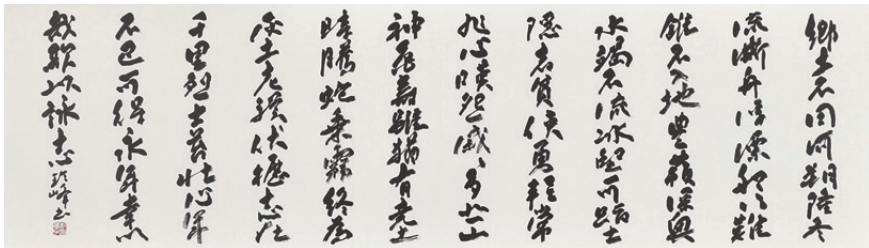 鄉土不同河朔隆冬
流澌舟浮漂行難
錐不入地豊藾深奧
水竭不流冰堅可蹈士
隱者貧俠勇輕常
非心嘆怨戚戚多悲
神龜雖壽猶有竟
時騰蛇乘霧終為
灰土老驥伏櫪志在
千里烈士暮壯心年
不已可得永年幸甚
哉歌以詠志